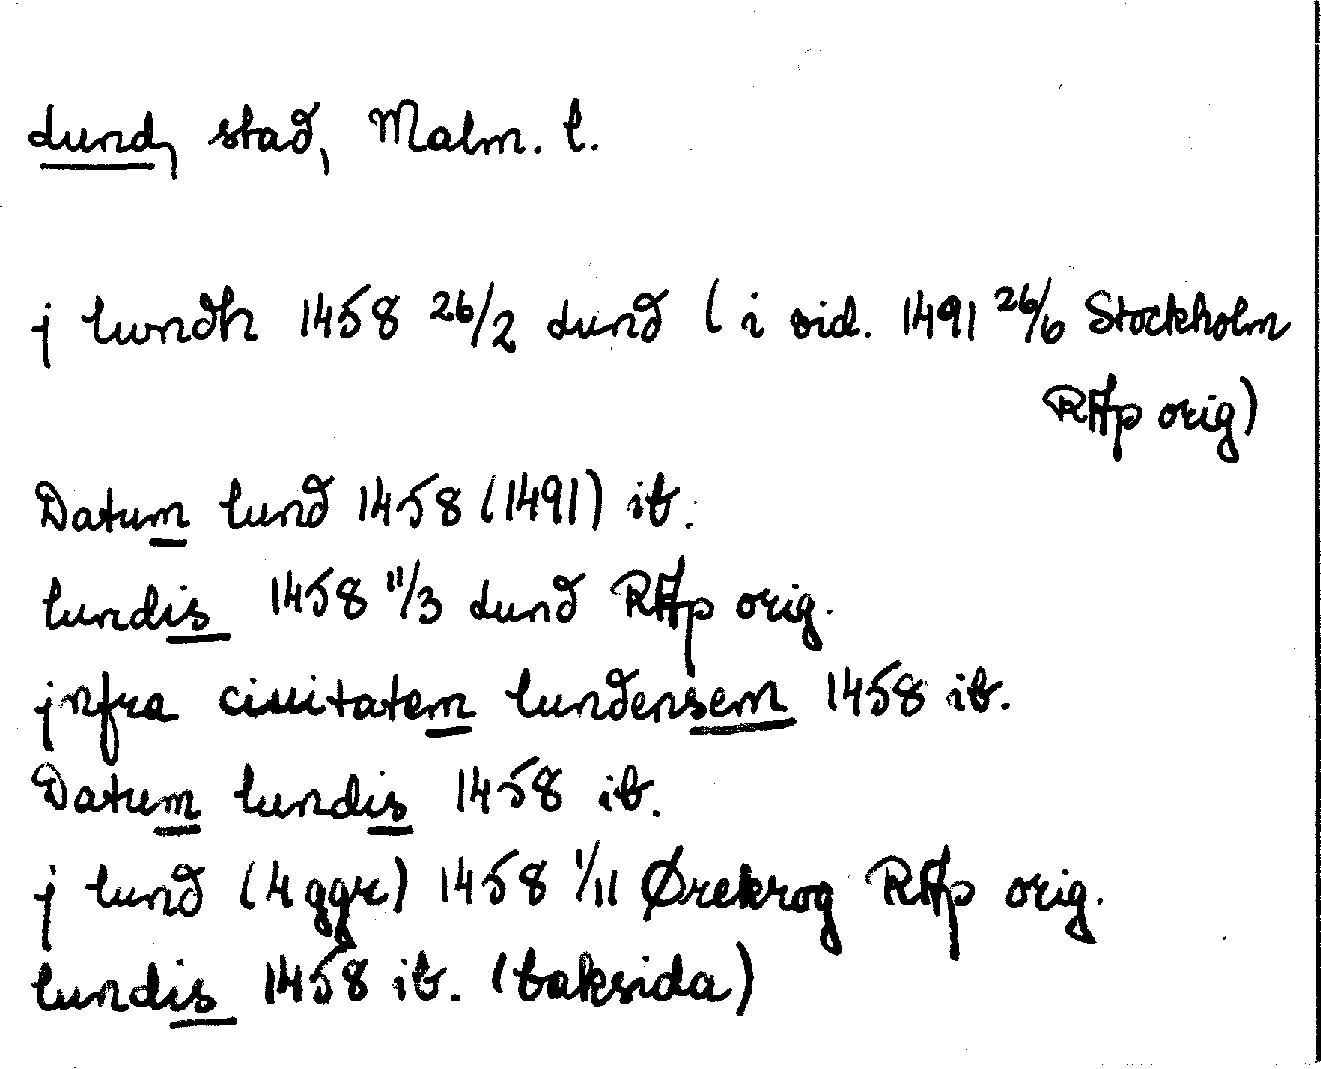 Lund, stad, Malm. l.
j lwndh 1458 26/2 Lund (i vid. 1491 26/6 Stockholm
RAp orig)
Datum lund 1458 (1491) ib.
lundis 1458 11/3 Lund RAp orig.
jnfra ciuitatem lundensem 1458 ib.
Datum lundis 1458 ib.
j lund (4 ggr) 1458 1/11 Ørekrog RAp orig.
lundis 1458 ib. (baksida)